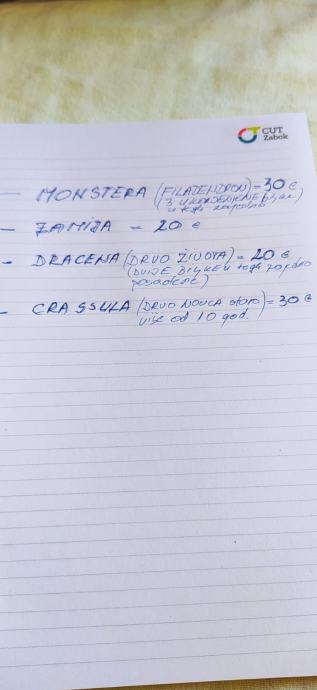 CUT
Zabok
- MONSTERA (FILADENDRON) = 30 €
(3 UKORJENJENE biljke)
u tegli zajedno
- ZAMIJA - 20 €
- DRACENA (DRVO ŽIVOTA) = 20 €
(DVIJE BILJKE u tegli zajedno
posađene)
- CRASSULA (DRVO NOVCA staro) = 30 €
više od 10 god.